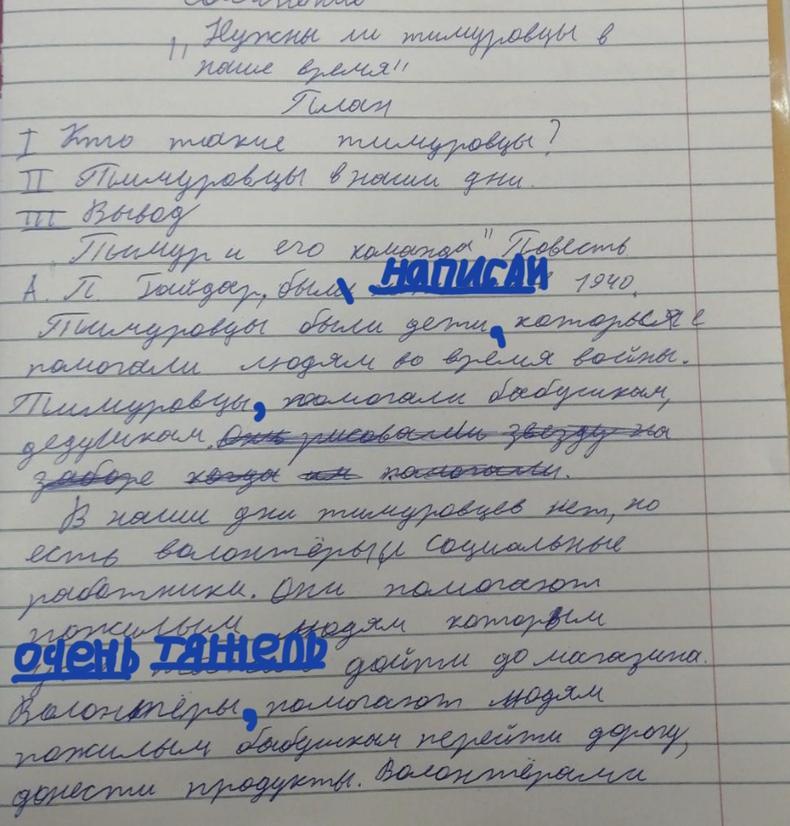 Сочинение
"Нужны ли тимуровцы в
наше время"
План
I Кто такие тимуровцы?
II Тимуровцы в наши дни.
III Вывод
"Тимур и его команда" Повесть
А. П. Гайдар, был НАПИСАЙ 1940.
Тимуровцы были дети, которые
помогали людям во время войны.
Тимуровцы, помогали бабушкам,
дедушкам. Они рисовали звезду на
заборе когда им помогали.
В наши дни тимуровцев нет, но
есть волонтёры и социальные
работники. Они помогают
пожилым людям которым
ОЧЕНЬ ТЯЖЕЛЬ дойти до магазина.
Волонтёры, помогают людям
пожилым бабушкам перейти дорогу,
донести продукты. Волонтёрами